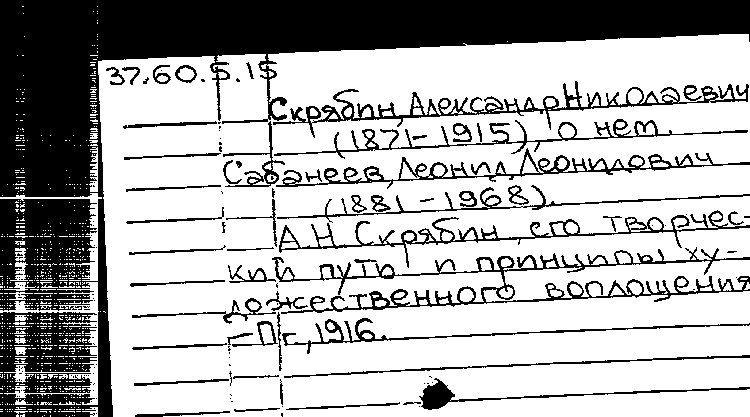 37.60.5.15
Скрябин, Александр Николаевич
(1871-1915), о нем.
Сабанеев, Леонид Леонидович
(1881-1968).
А.Н. Скрябин, его творчес-
кий путь и принципы ху-
дожественного воплощения
-Пг., 1916.